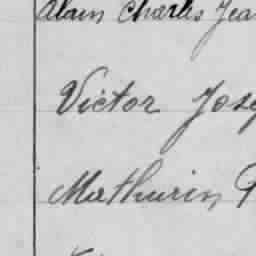 Alain Charles Jea
Victor Jose
Mathurin